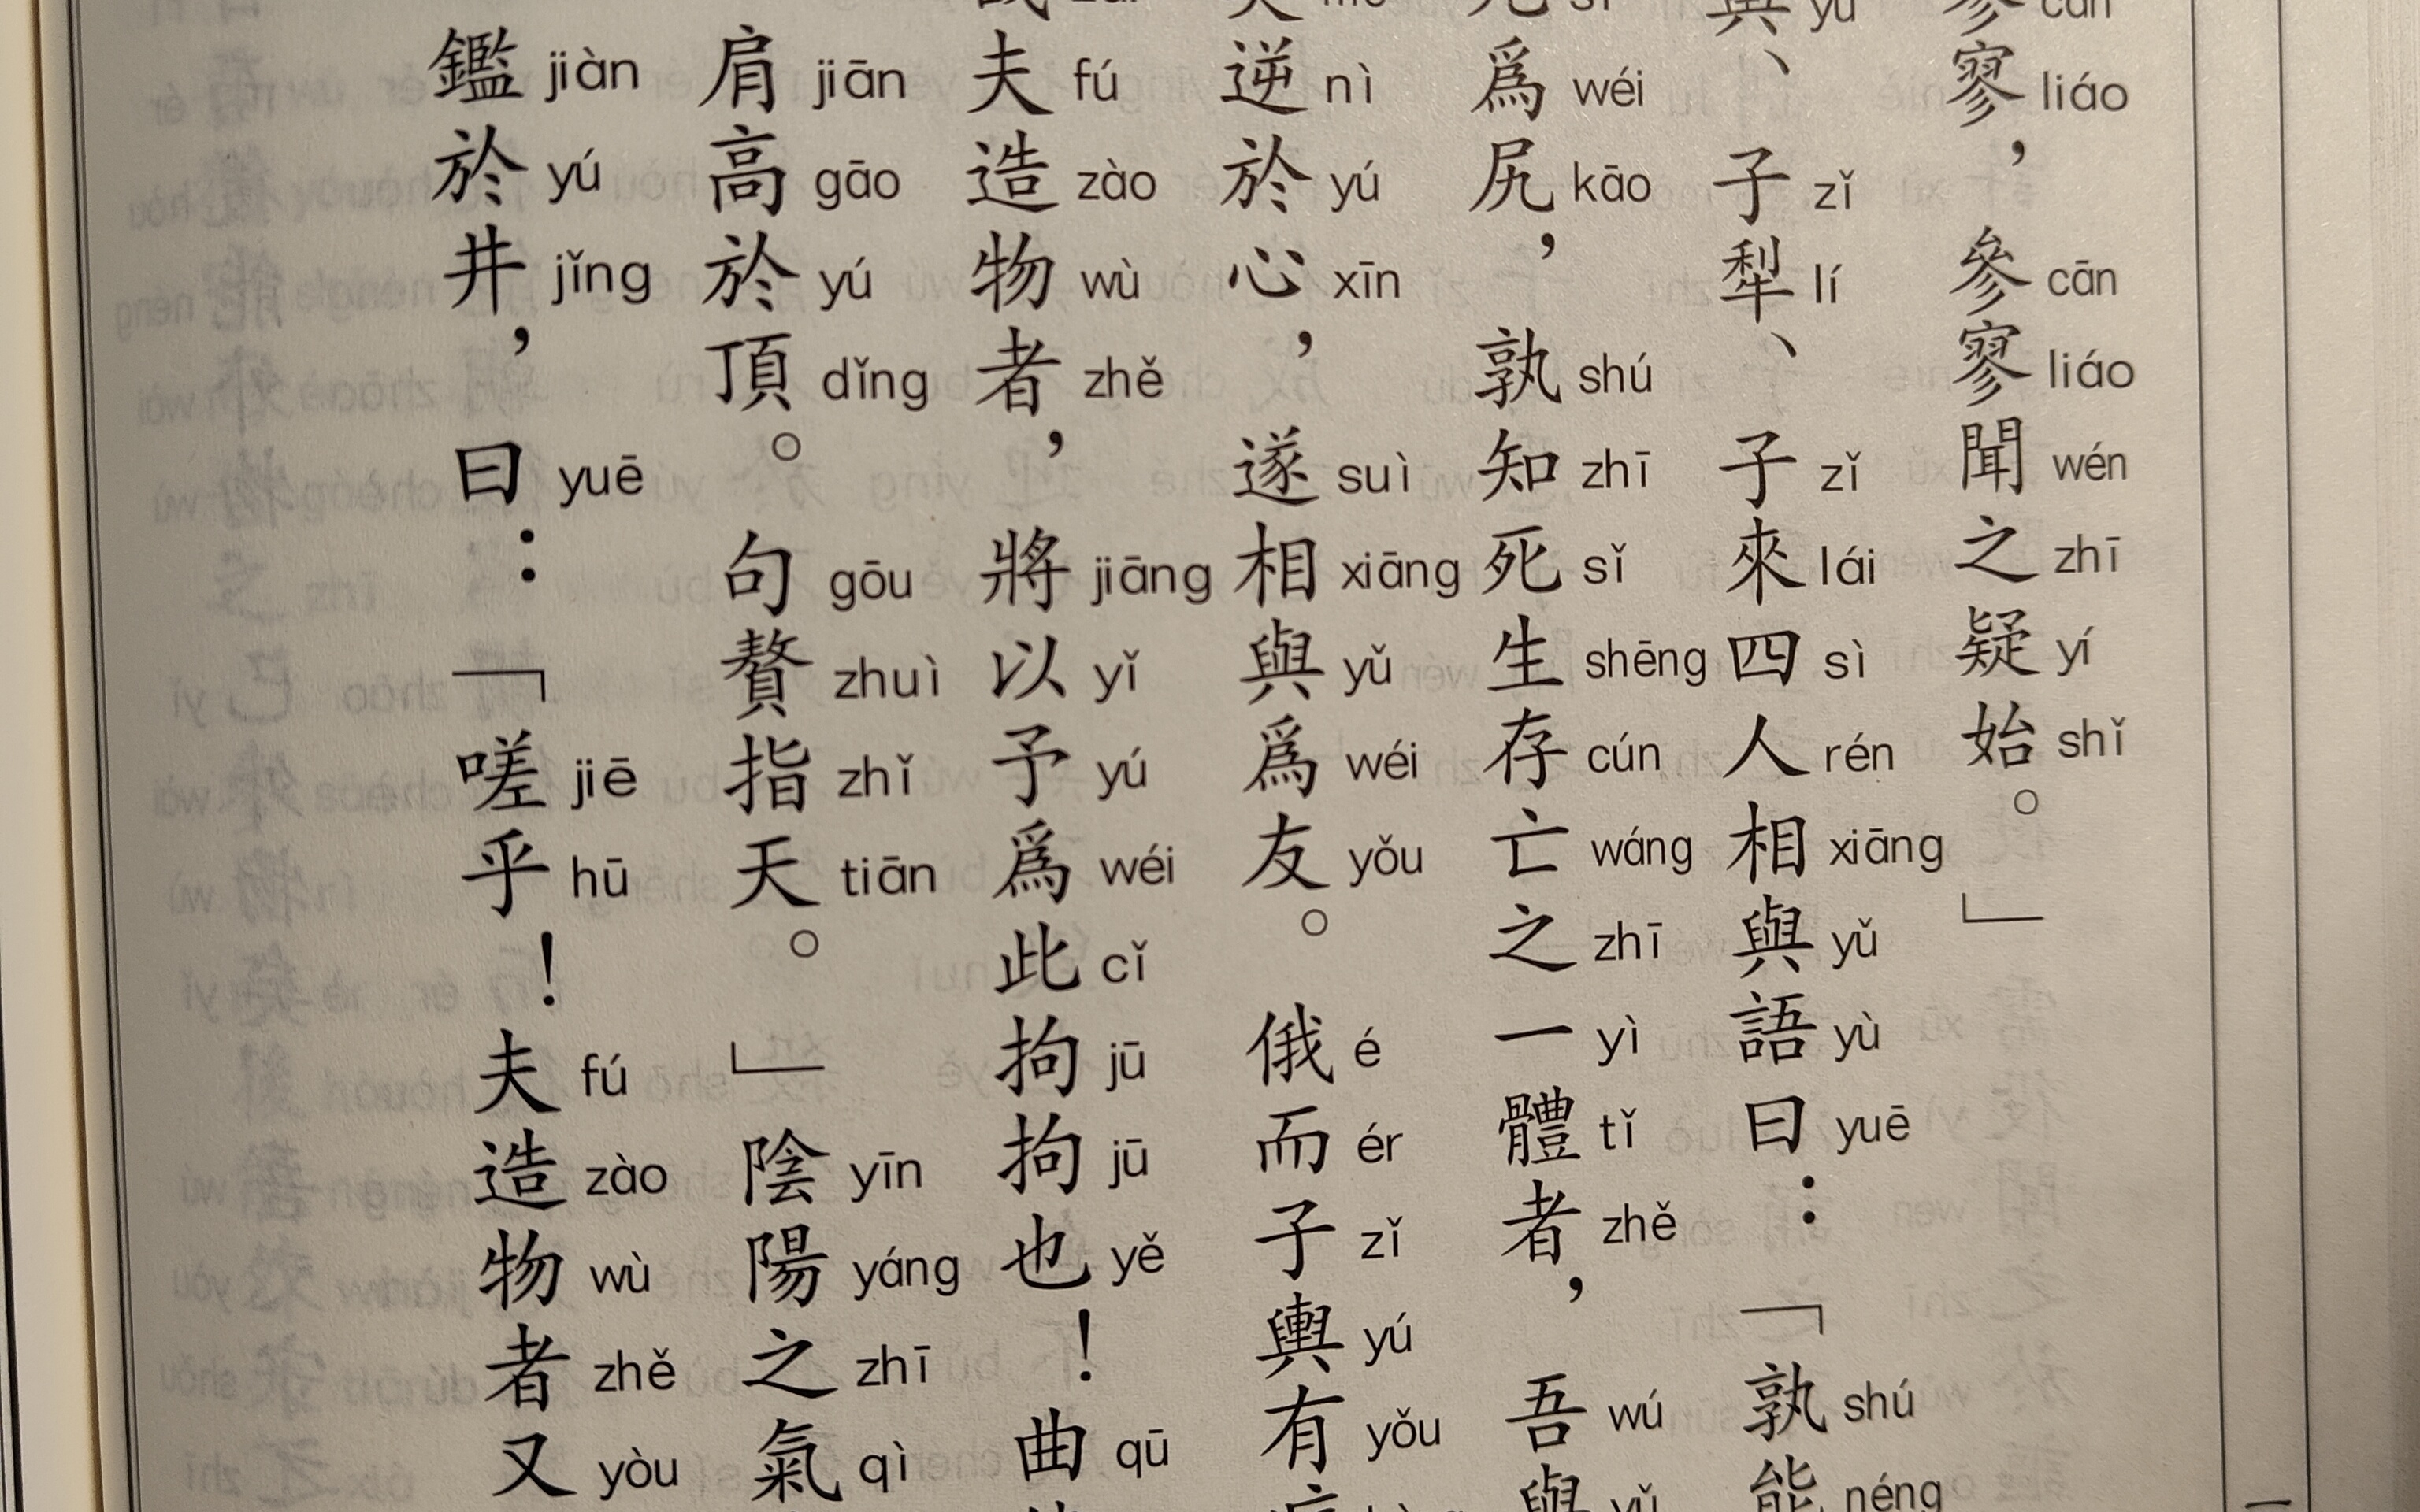 參cān寥liáo，參cān寥liáo聞wén之zhī疑yí始shǐ。」
與yú、子zǐ犁lí、子zǐ來lái四sì人rén相xiāng與yǔ語yù曰yuē：「孰shú能néng
死sǐ爲wéi尻kāo，孰shú知zhī死sǐ生shēng存cún亡wáng之zhī一yì體tǐ者zhě，吾wú與yǔ
莫mò逆nì於yú心xīn，遂suì相xiāng與yǔ爲wéi友yǒu。俄é而ér子zǐ輿yú有yǒu
夫fú造zào物wù者zhě，將jiāng以yǐ予yú爲wéi此cǐ拘jū拘jū也yě！曲qū
肩jiān高gāo於yú頂dǐng。句gōu贅zhuì指zhǐ天tiān。」陰yīn陽yáng之zhī氣qì
鑑jiàn於yú井jǐng，曰yuē：「嗟jiē乎hū！夫fú造zào物wù者zhě又yòu